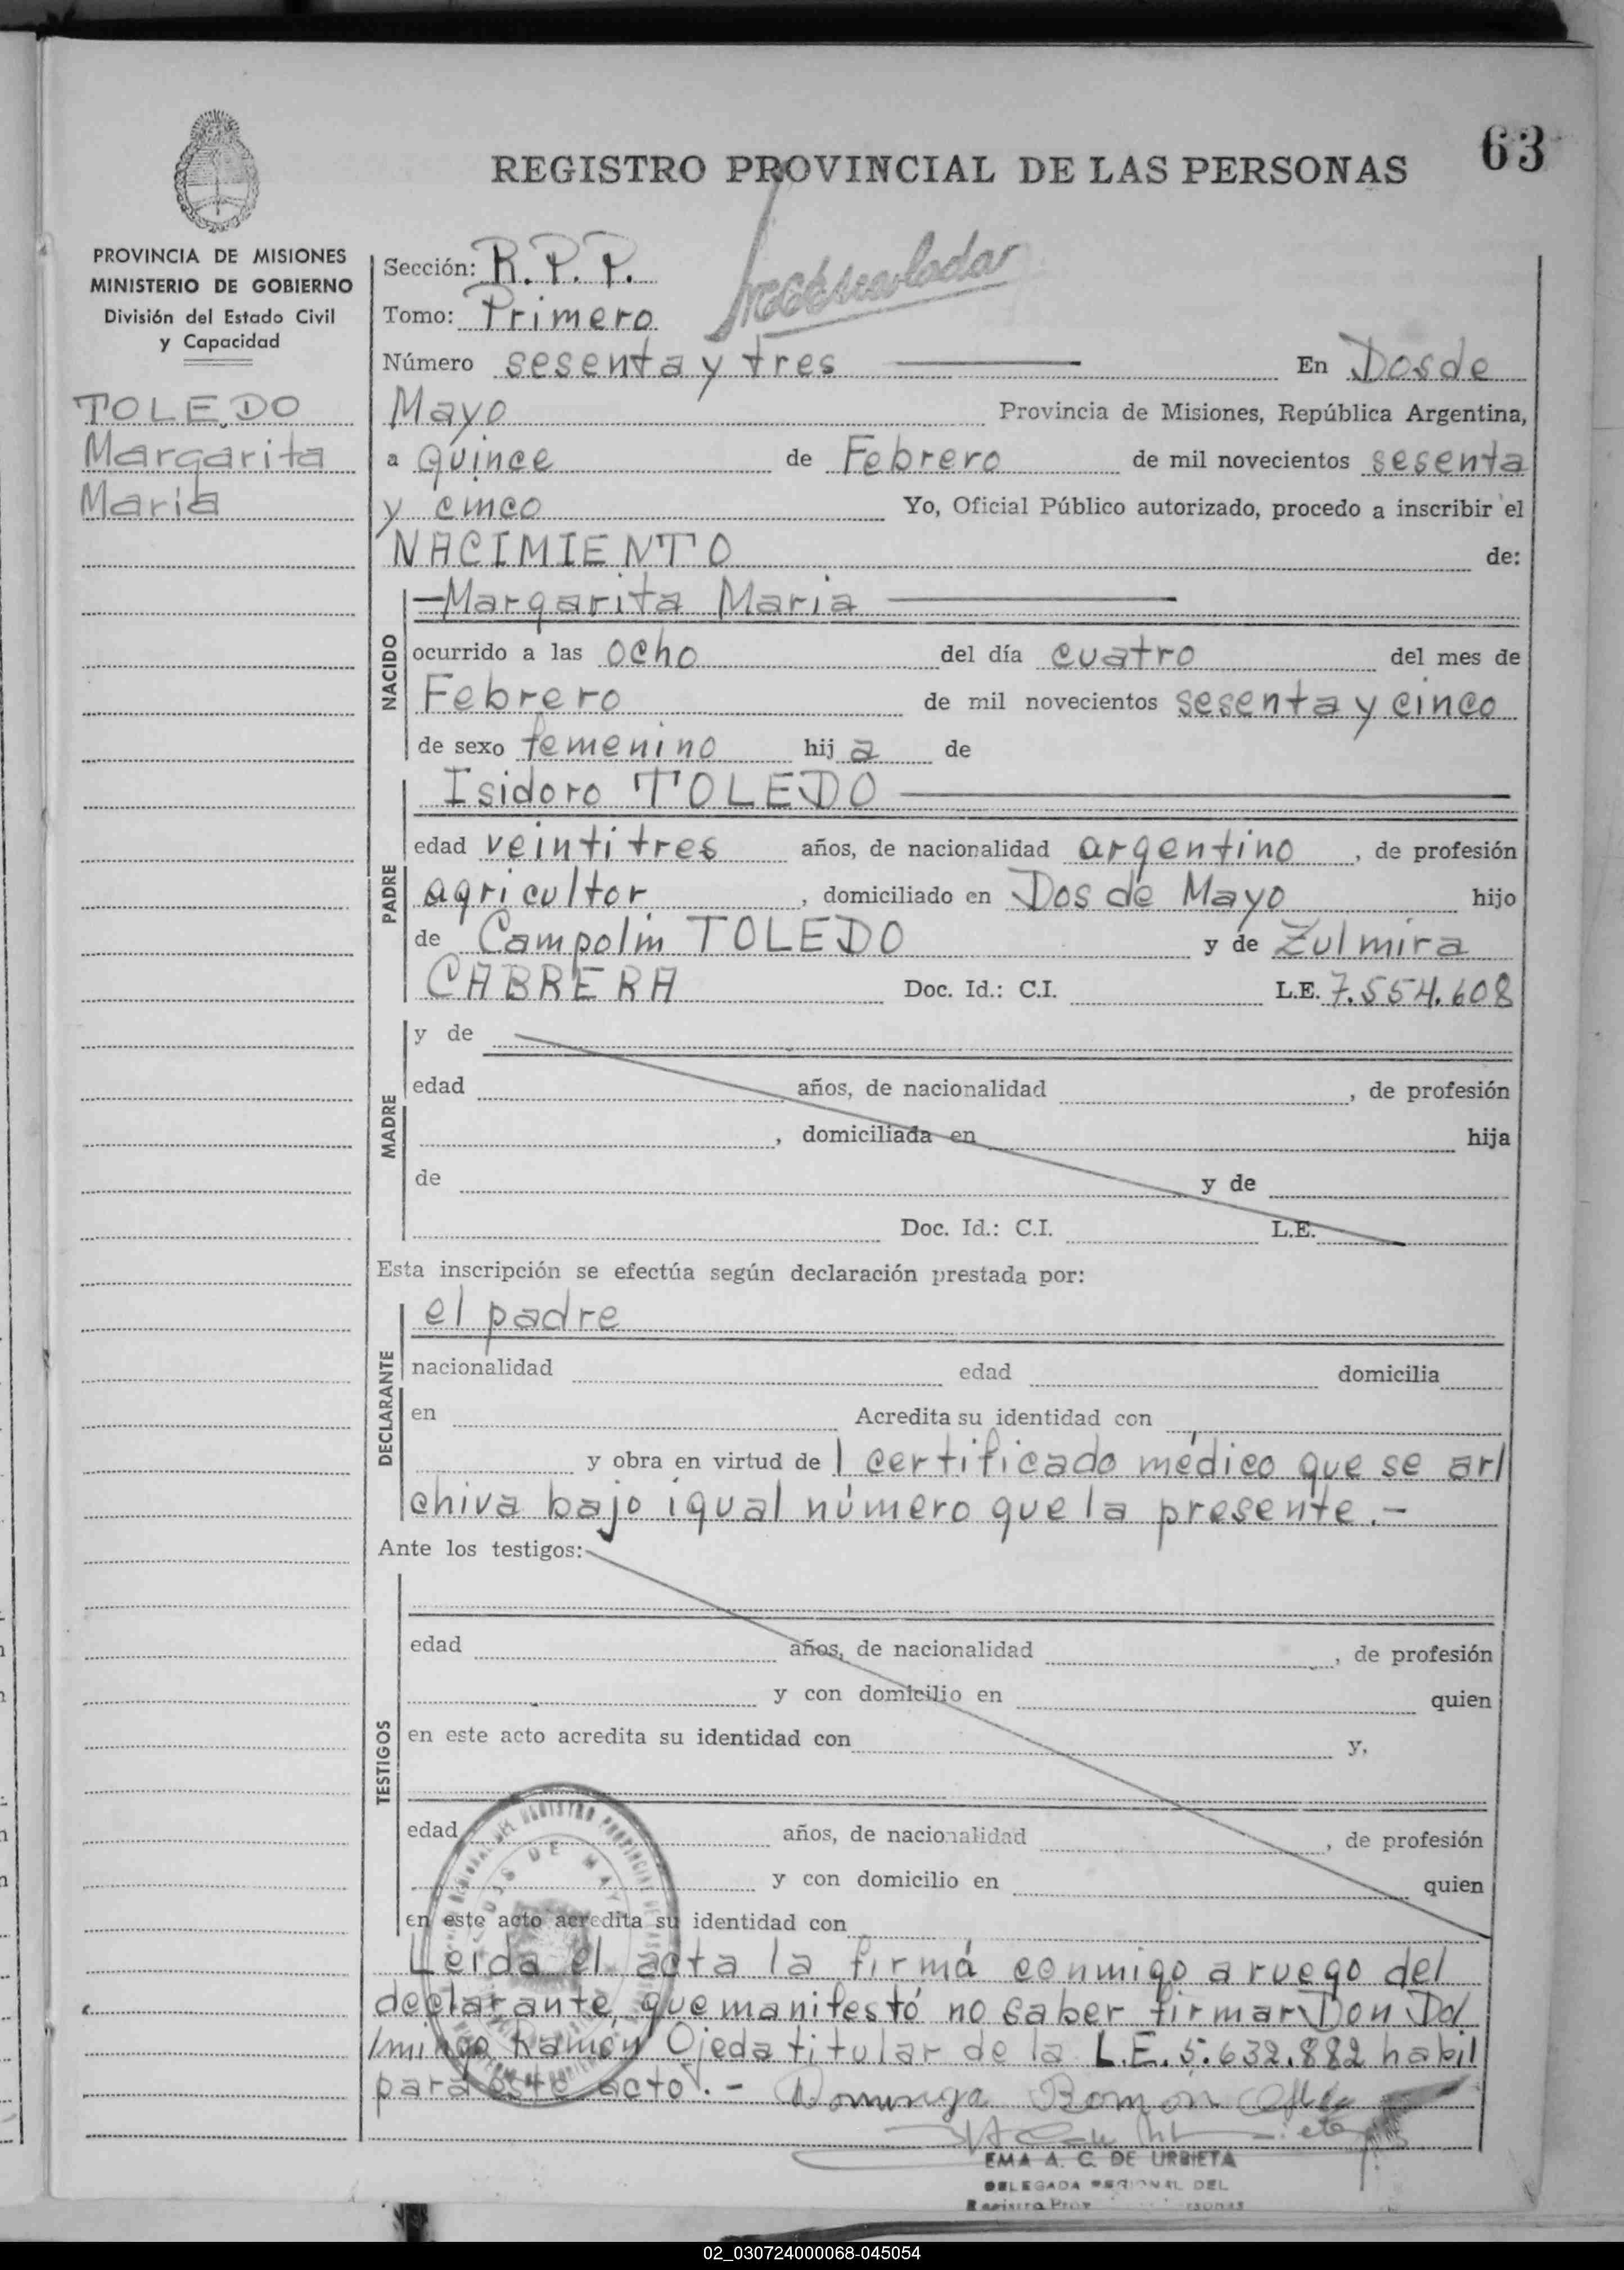 63
REGISTRO PROVINCIAL DE LAS PERSONAS
PROVINCIA DE MISIONES
MINISTERIO DE GOBIERNO
División del Estado Civil
y Capacidad
TOLEDO
Margarita
Maria
Sección: R.P.P.
Tomo: Primero
Número sesenta y tres En Dos de
Mayo Provincia de Misiones, República Argentina,
a quince de Febrero de mil novecientos sesenta
y cinco Yo, Oficial Público autorizado, procedo a inscribir el
NACIMIENTO de:
NACIDO
—Margarita Maria
ocurrido a las ocho del día cuatro del mes de
Febrero de mil novecientos sesenta y cinco
de sexo femenino hija de
PADRE
Isidoro TOLEDO
edad veintitres años, de nacionalidad argentino, de profesión
agricultor, domiciliado en Dos de Mayo hijo
de Campolin TOLEDO y de Zulmira
CABRERA Doc. Id.: C.I. L.E. 7.554.608
MADRE
y de
edad años, de nacionalidad , de profesión
, domiciliada en hija
de y de
Doc. Id.: C.I. L.E.
Esta inscripción se efectúa según declaración prestada por:
DECLARANTE
el padre
nacionalidad edad domicilia
en Acredita su identidad con
y obra en virtud de 1 certificado médico que se ar/
chiva bajo igual número que la presente.-
Ante los testigos:
TESTIGOS
edad años, de nacionalidad , de profesión
y con domicilio en quien
en este acto acredita su identidad con y,
edad años, de nacionalidad , de profesión
y con domicilio en quien
en este acto acredita su identidad con
Leida el acta la firmá conmigo a ruego del
declarante, que manifestó no saber firmar Don Do/
/mingo Ramón Ojeda titular de la L.E. 5.632.882 habil
para este acto.-
EMA A. C. DE URBIETA
DELEGADA REGIONAL DEL
02_030724000068-045054